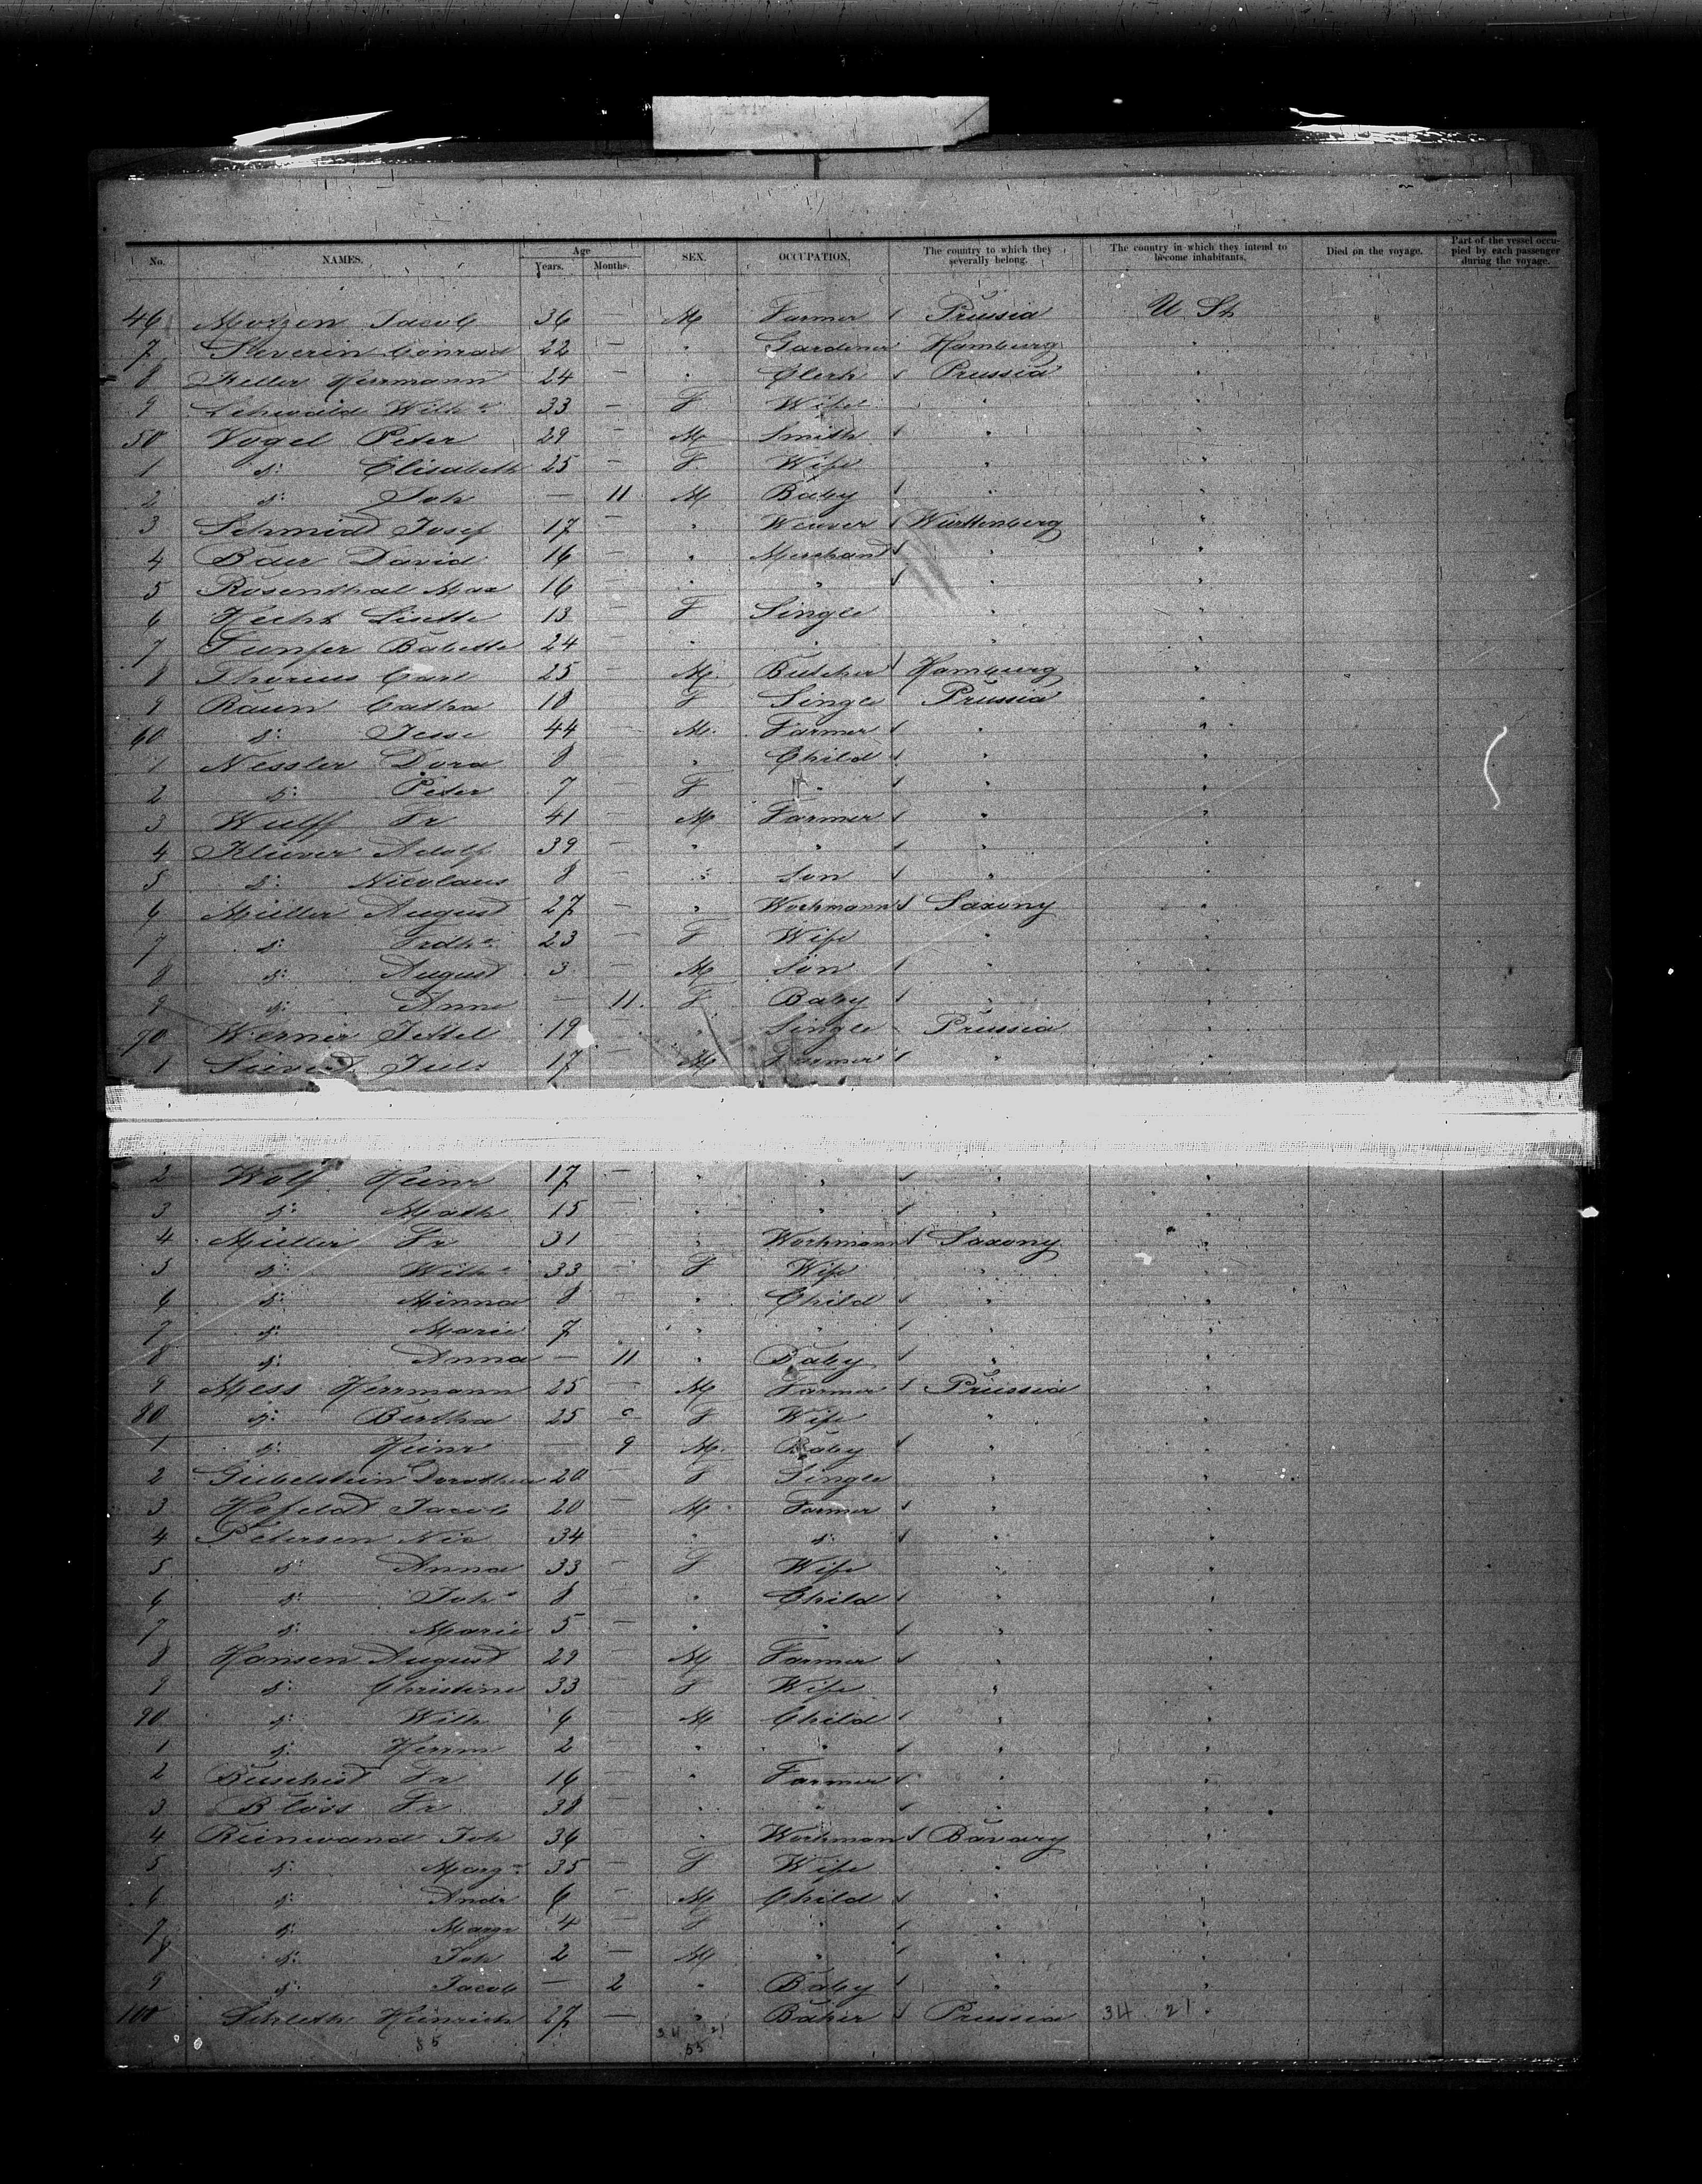 No. NAMES. Age Years. Months. SEX. OCCUPATION. The country to which they severally belong. The country in which they intend to become inhabitants. Died on the voyage. Part of the vessel occupied by each passenger during the voyage.
46 Motzen Jacob 36 — M Farmer Prussia U St
7 Severin Conrad 22 — " Gardener Hamburg "
8 Keller Herrmann 24 — " Clerk Prussia "
9 Lehwald Wilhe 33 — F Wife " "
50 Vogel Peter 29 — M Smith " "
1 d: Elisabeth 25 — F Wife " "
2 d: Joh — 11 M Baby " "
3 Schmidt Josef 17 — " Weaver Württenberg "
4 Baer David 16 — " Merchant " "
5 Rosenthal Max 16 — " " " "
6 Hecht Lisette 13 — F Single " "
7 Babette 24 — " " " "
8 Thorius Carl 25 — M Butcher Hamburg "
9 Baun Catha 18 — F Single Prussia "
60 d: Jesse 44 — M Farmer " "
1 Nessler Dora 8 — " Child " "
2 d: Peter 7 — F " " "
3 Wulff Fr 41 — M Farmer " "
4 Kluver Adolf 39 — " " " "
5 d: Nicolaus 8 — " Son " "
6 Müller August 27 — " Workmann Saxony "
7 d: Frdke 23 — F Wife " "
8 d: August 3 — M Son " "
9 d: Anna — 11 F Baby " "
70 Werner Jettel 19 " Single Prussia "
1 Juls 17 — M Farmer " "
2 Wolf Heinr 17 — " " " "
3 d: Math 15 — " " " "
4 Müller Fr 31 — " Workmann Saxony "
5 d: Wilhe 33 — F Wife " "
6 d: Minna 8 — " Child " "
7 d: Marie 7 " " " "
8 d: Anna — 11 " Baby " "
9 Mess Herrmann 25 — M Farmer Prussia "
80 d: Bertha 25 — F Wife " "
1 d: Heinr — 9 M Baby " "
2 Giebelstein Dorothea 20 — F Single " "
3 Hofeldt Jacob 20 — M Farmer " "
4 Petersen Nic 34 — " d: " "
5 d: Anna 33 — F Wife " "
6 d: Johe 8 — " Child " "
7 d: Marie 5 — " " " "
8 Hansen August 29 — M Farmer " "
9 d: Christine 33 — F Wife " "
90 d: Wilh 4 — M Child " "
1 d: Herrm 2 — " " " "
2 Fr 16 — " Farmer " "
3 Blöss Fr 38 — " " " "
4 Reinwand Joh 36 — " Workman Bavary "
5 d: Marge 35 — F Wife " "
6 d: Andr 6 — M Child " "
7 d: Marg 4 — F " " "
8 d: Joh 2 — M " " "
9 d: Jacob — 2 " Baby " "
100 Schleth Heinrich 27 — " Baker Prussia 34 21 "
85 34 21
55